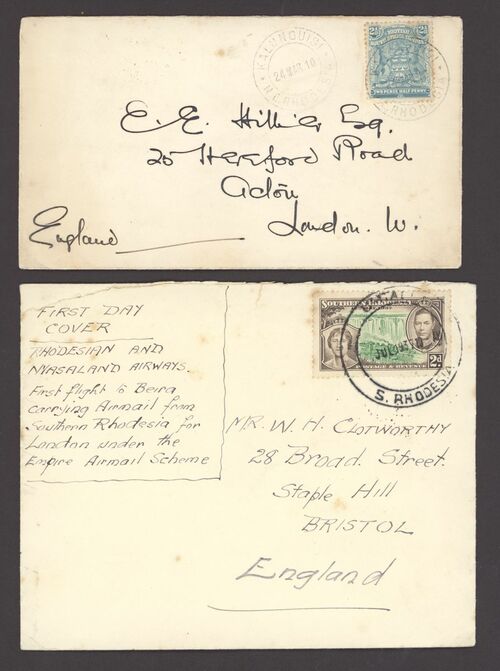 KALUNGUISI
24 MAR. 10
N.E. RHODESIA
2½
BRITISH
SOUTH AFRICA COMPANY
TWO PENCE HALF PENNY
E. E. Hillier Esq.
25 Hereford Road
Acton
London. W.
England
FIRST DAY
COVER
RHODESIAN AND
NYASALAND AIRWAYS.
First flight to Beira
carrying Airmail from
Southern Rhodesia for
London under the
Empire Airmail Scheme
SOUTHERN RHODESIA
POSTAGE & REVENUE
2d
S. RHODESIA
MR. W. H. CLOTWORTHY
28 Broad. Street.
Staple Hill
BRISTOL
England